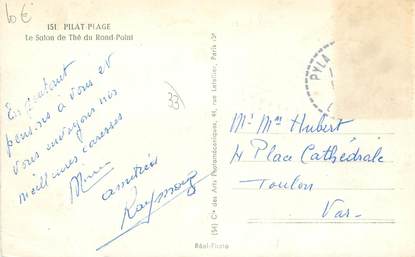 10 €
151. PILAT-PLAGE
Le Salon de Thé du Rond-Point
En pensant
à vous et
vous envoyons nos
meilleures caresses
amitiés
Raymond
33
(54) Cie des Arts Photomécaniques, 44, rue Letellier, Paris 15e
Réel-Photo
PYLA
Mr Mme Hubert
4 Place Cathédrale
Toulon
Var.